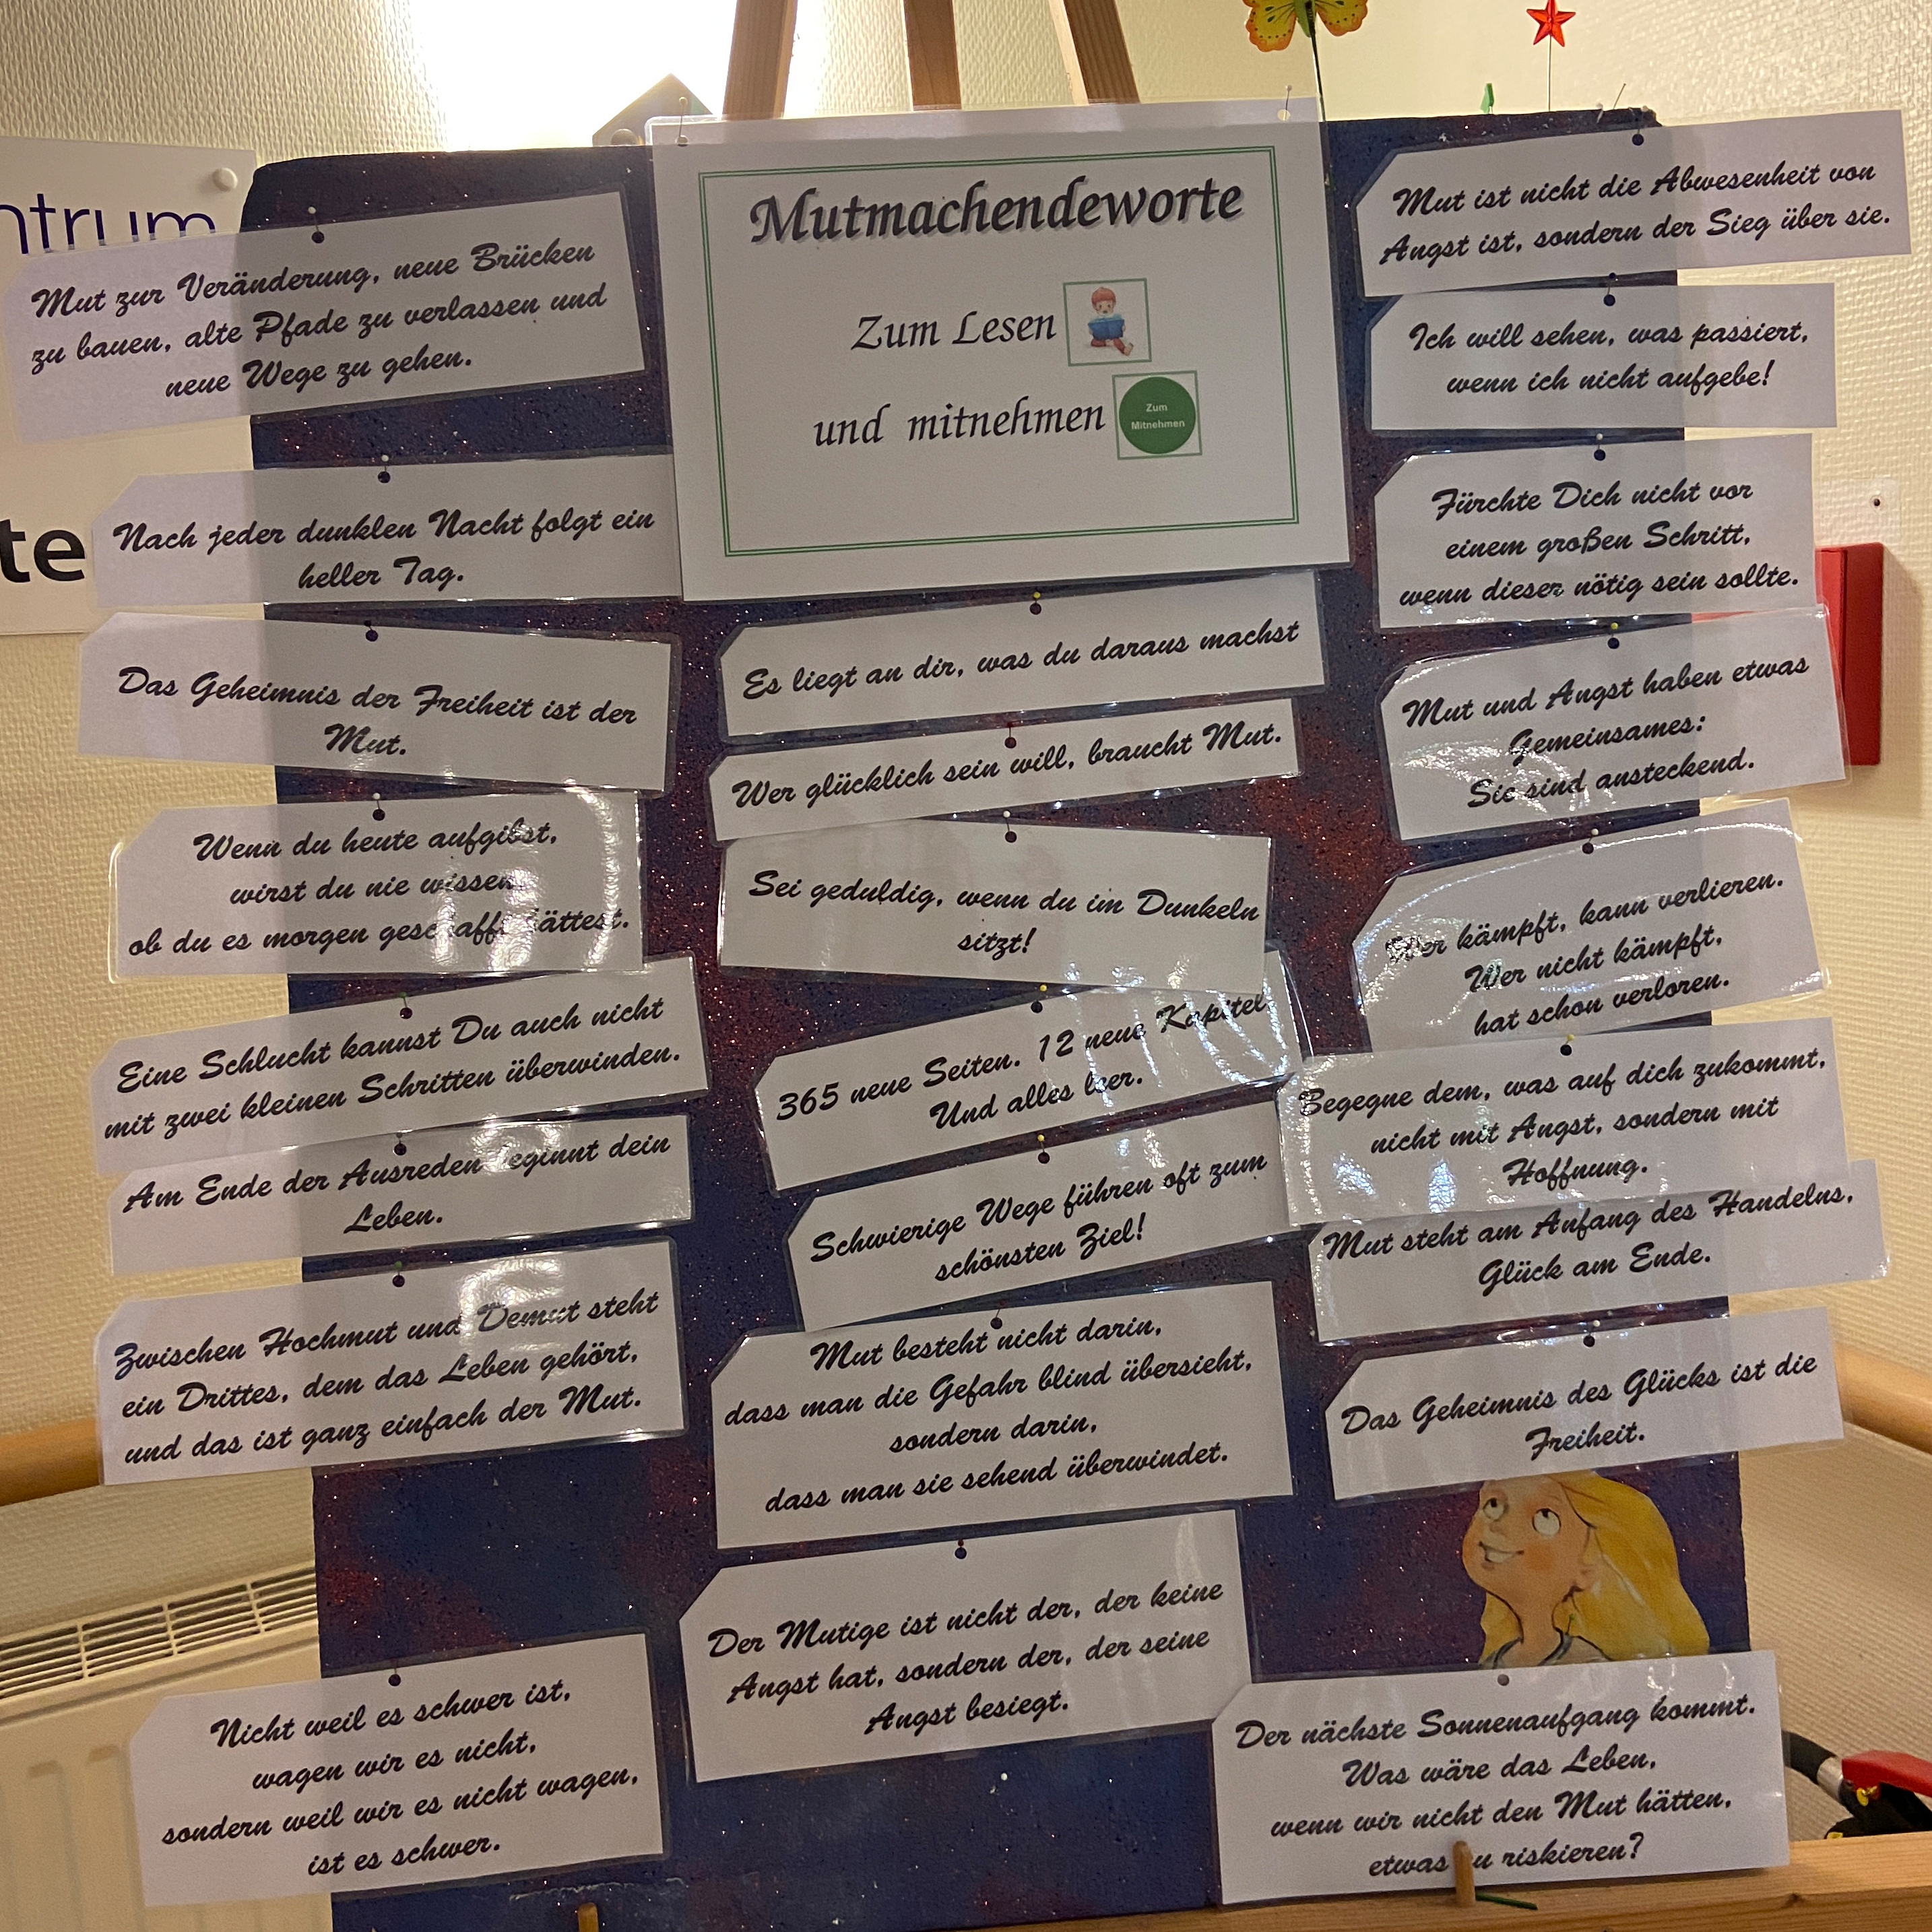 ntrum
te
Mutmachendeworte
Zum Lesen
und mitnehmen
Zum
Mitnehmen
Mut zur Veränderung, neue Brücken
zu bauen, alte Pfade zu verlassen und
neue Wege zu gehen.
Nach jeder dunklen Nacht folgt ein
heller Tag.
Das Geheimnis der Freiheit ist der
Mut.
Wenn du heute aufgibst,
wirst du nie wissen,
ob du es morgen geschafft hättest.
Eine Schlucht kannst Du auch nicht
mit zwei kleinen Schritten überwinden.
Am Ende der Ausreden beginnt dein
Leben.
Zwischen Hochmut und Demut steht
ein Drittes, dem das Leben gehört,
und das ist ganz einfach der Mut.
Nicht weil es schwer ist,
wagen wir es nicht,
sondern weil wir es nicht wagen,
ist es schwer.
Es liegt an dir, was du daraus machst
Wer glücklich sein will, braucht Mut.
Sei geduldig, wenn du im Dunkeln
sitzt!
365 neue Seiten. 12 neue Kapitel
Und alles leer.
Schwierige Wege führen oft zum
schönsten Ziel!
Mut besteht nicht darin,
dass man die Gefahr blind übersieht,
sondern darin,
dass man sie sehend überwindet.
Der Mutige ist nicht der, der keine
Angst hat, sondern der, der seine
Angst besiegt.
Mut ist nicht die Abwesenheit von
Angst ist, sondern der Sieg über sie.
Ich will sehen, was passiert,
wenn ich nicht aufgebe!
Fürchte Dich nicht vor
einem großen Schritt,
wenn dieser nötig sein sollte.
Mut und Angst haben etwas
Gemeinsames:
Sie sind ansteckend.
Wer kämpft, kann verlieren.
Wer nicht kämpft,
hat schon verloren.
Begegne dem, was auf dich zukommt,
nicht mit Angst, sondern mit
Hoffnung.
Mut steht am Anfang des Handelns,
Glück am Ende.
Das Geheimnis des Glücks ist die
Freiheit.
Der nächste Sonnenaufgang kommt.
Was wäre das Leben,
wenn wir nicht den Mut hätten,
etwas zu riskieren?